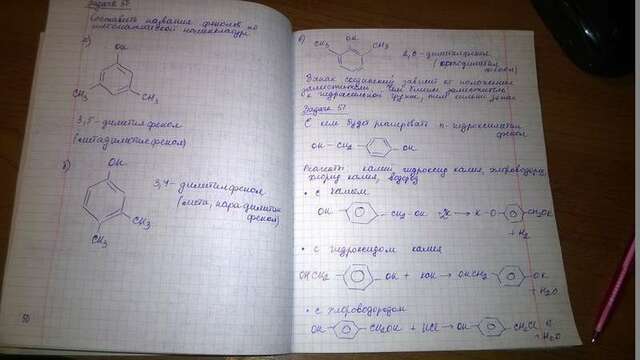 Задача 50
Составить названия фенолов по
систематической номенклатуре
а)
OH
CH3
CH3
3,5-диметилфенол
(метадиметилфенол)
б)
OH
3,4-диметилфенол
(мета, пара-диметил
фенол)
CH3
CH3
50
в)
OH
CH3
CH3
2,6-диметилфенол
(ортодиметил
фенол)
Запах соединений зависит от положения
заместителей. Чем ближе заместитель
к гидроксильной группе, тем сильнее запах
Задача 51
С чем будет реагировать п-гидроксиметил
фенол
OH-CH2- -OH
Реагенты: калий, гидроксид калия, хлороводород,
хлорид калия, водород
• с калием
OH CH2-OH K → K-O CH2OK
+ H2
• с гидроксидом калия
OHCH2 OH + KOH → OHCH2 OK
+ H2O
• с хлороводородом
OH CH2OH + HCl → OH CH2Cl
+ H2O